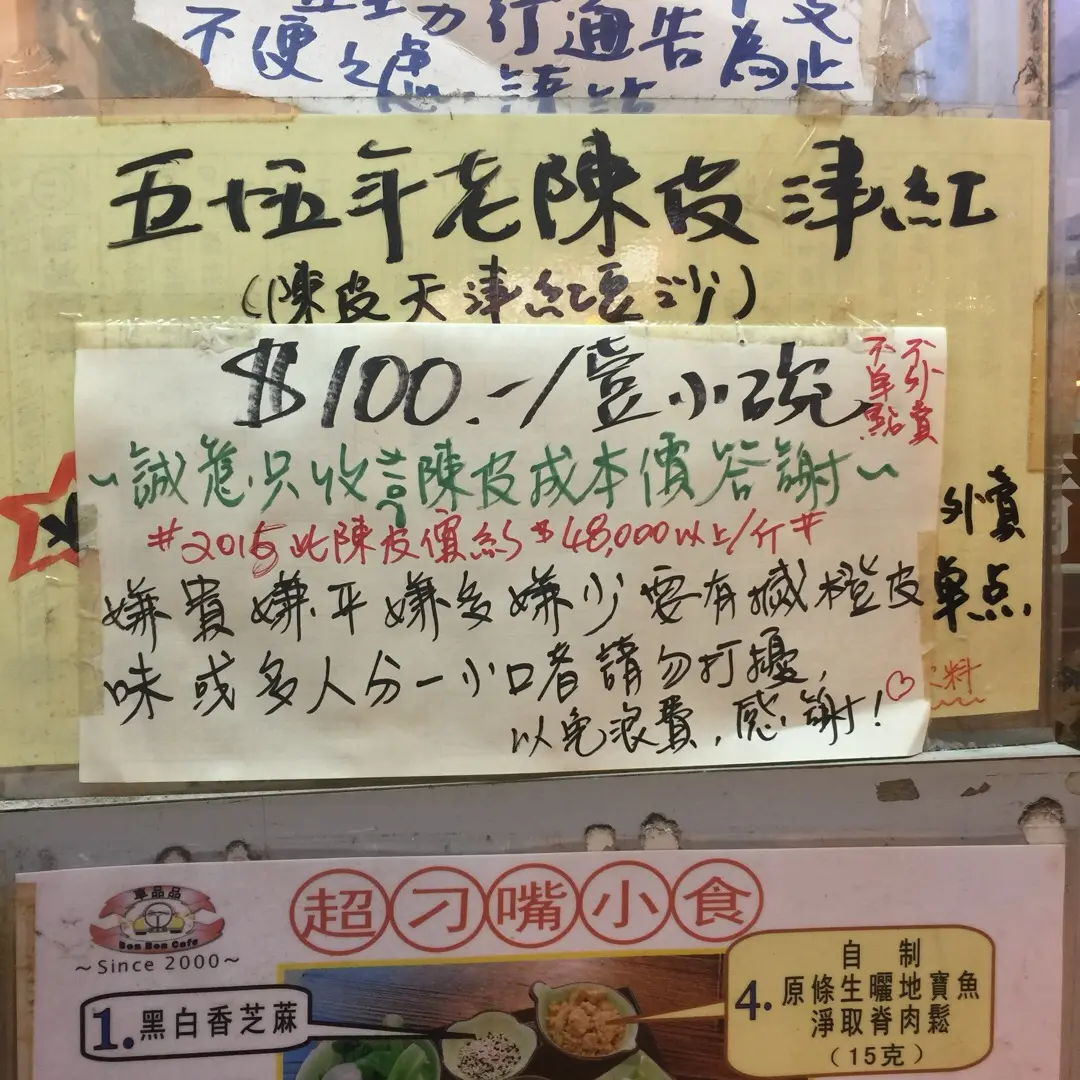 不便之處
行通告為止
五十五年老陳皮津紅
(陳皮天津紅豆沙)
$100.-/壹小碗
不外賣
不單點
~誠意只收陳皮成本價答謝~
#2015此陳皮價約$48,000以上/斤#
嫌貴嫌平嫌多嫌少要有搣橙皮
味或多人分一小口者請勿打擾,
以免浪費,感謝!
外賣
單点.
料
超刁嘴小食
單品品
Bon Bon Cafe
~Since 2000~
1.黑白香芝蔴
4.自制
原條生曬地寶魚
淨取脊肉鬆
(15克)